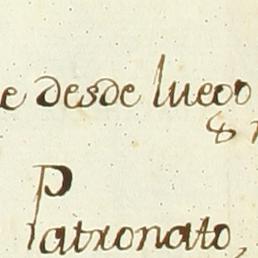 e desde luego
Patronato,